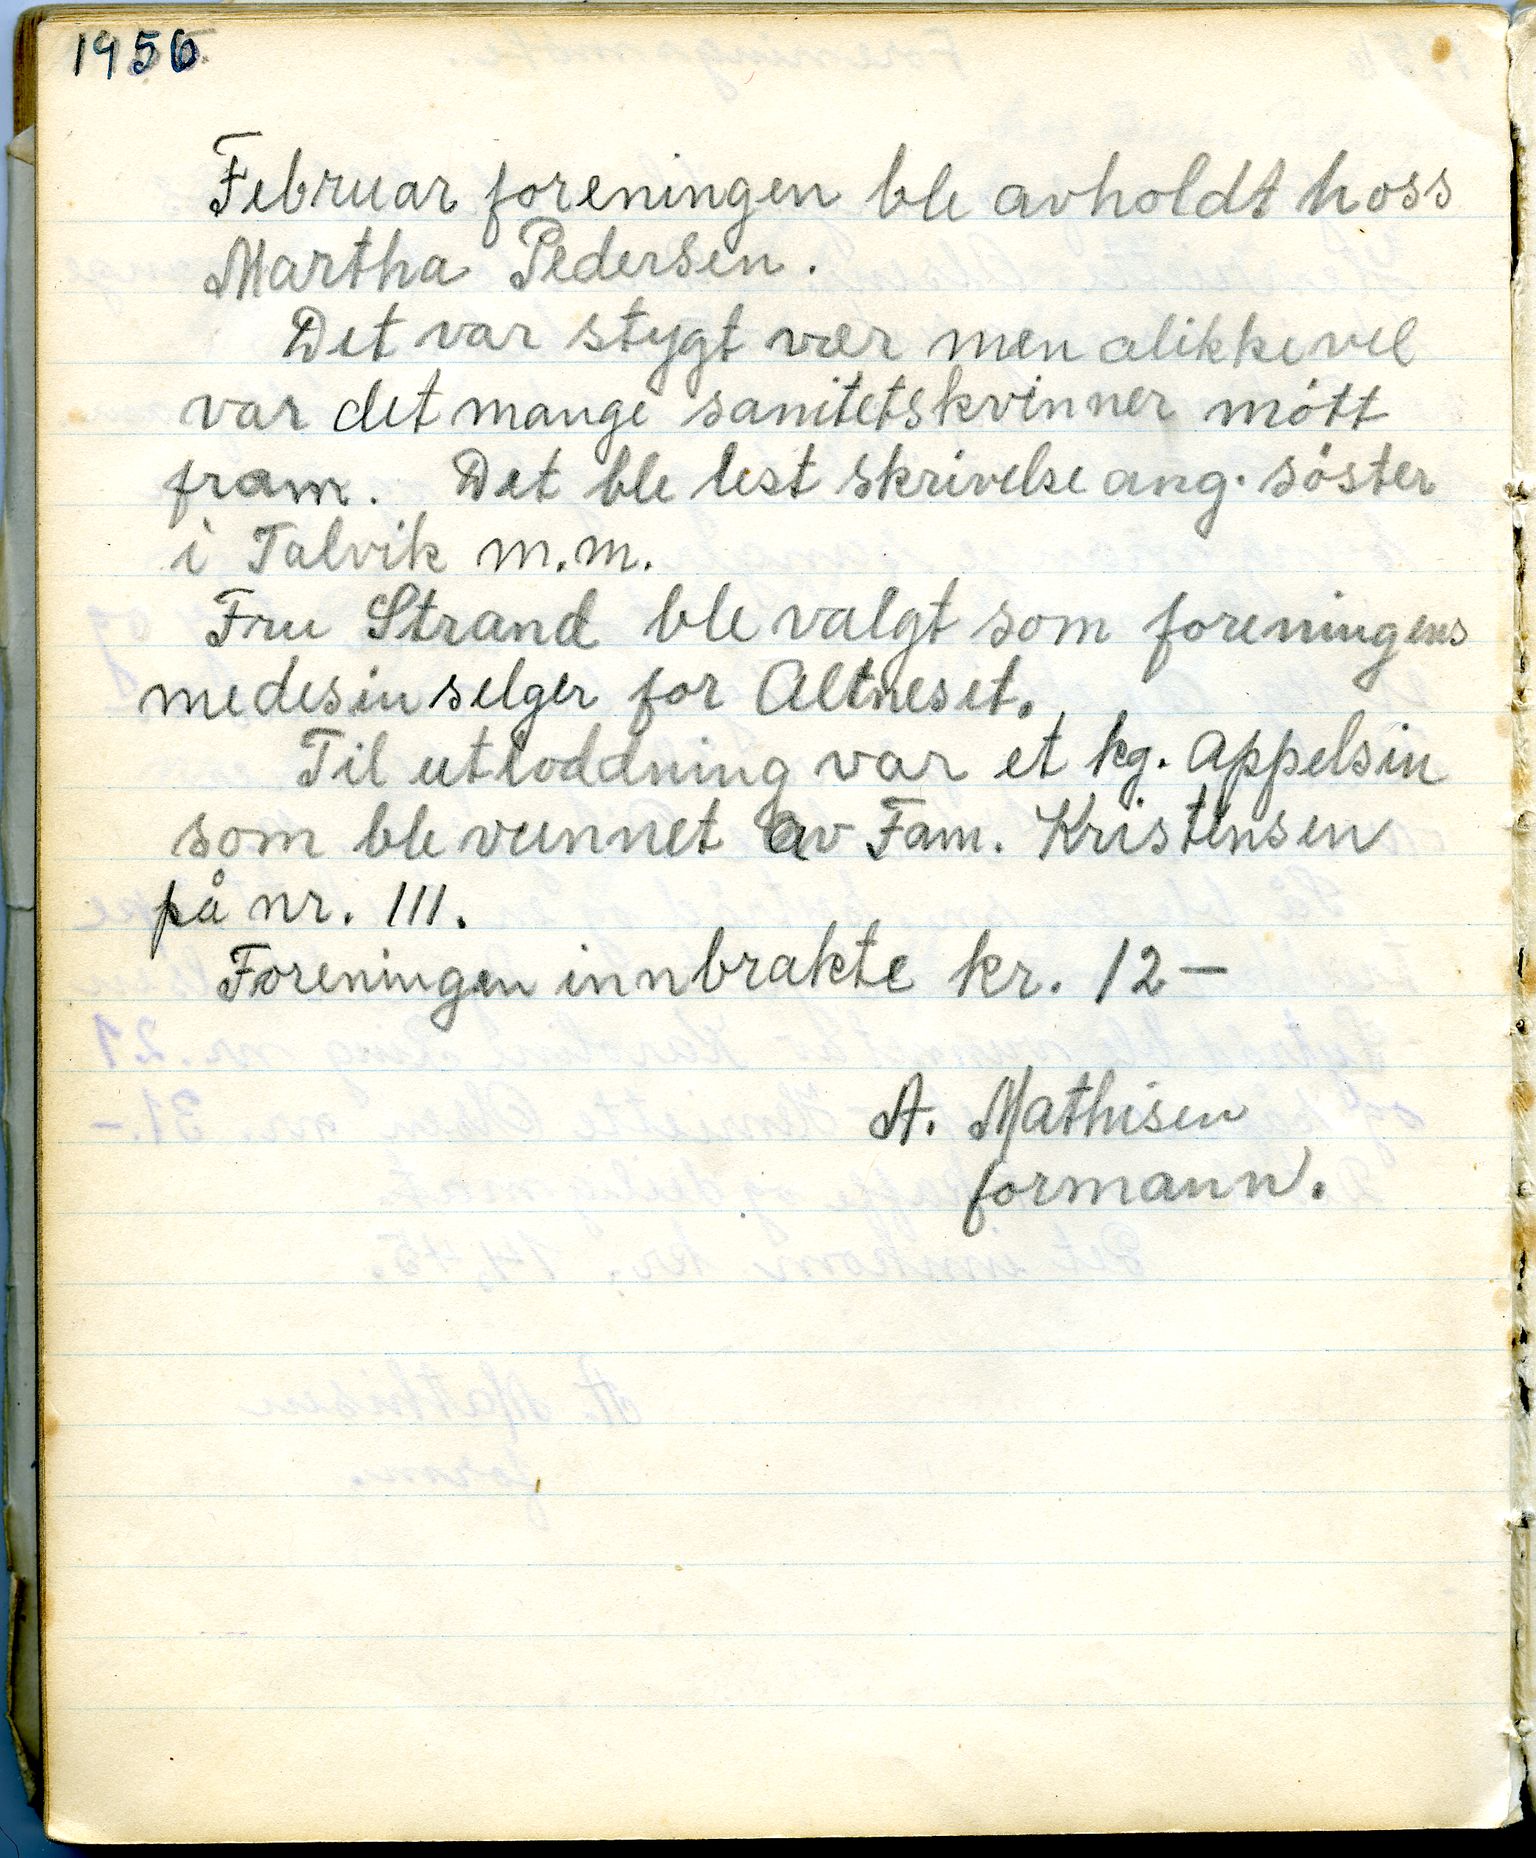 1956
Februar foreningen ble avholdt hoss
Martha Pedersen.
Det var stygt vær men alikkevel
var det mange sanitetskvinner møtt
fram. Det ble lest skrivelse ang. søster
i Talvik m.m.
Fru Strand ble valgt som foreningens
medesinselger for Altneset.
Til utloddning var et kg. appelsin
som ble vunnet av Fam. Kristensen
på nr. 111.
Foreningen innbrakte kr. 12 —
A. Mathisen
formann.